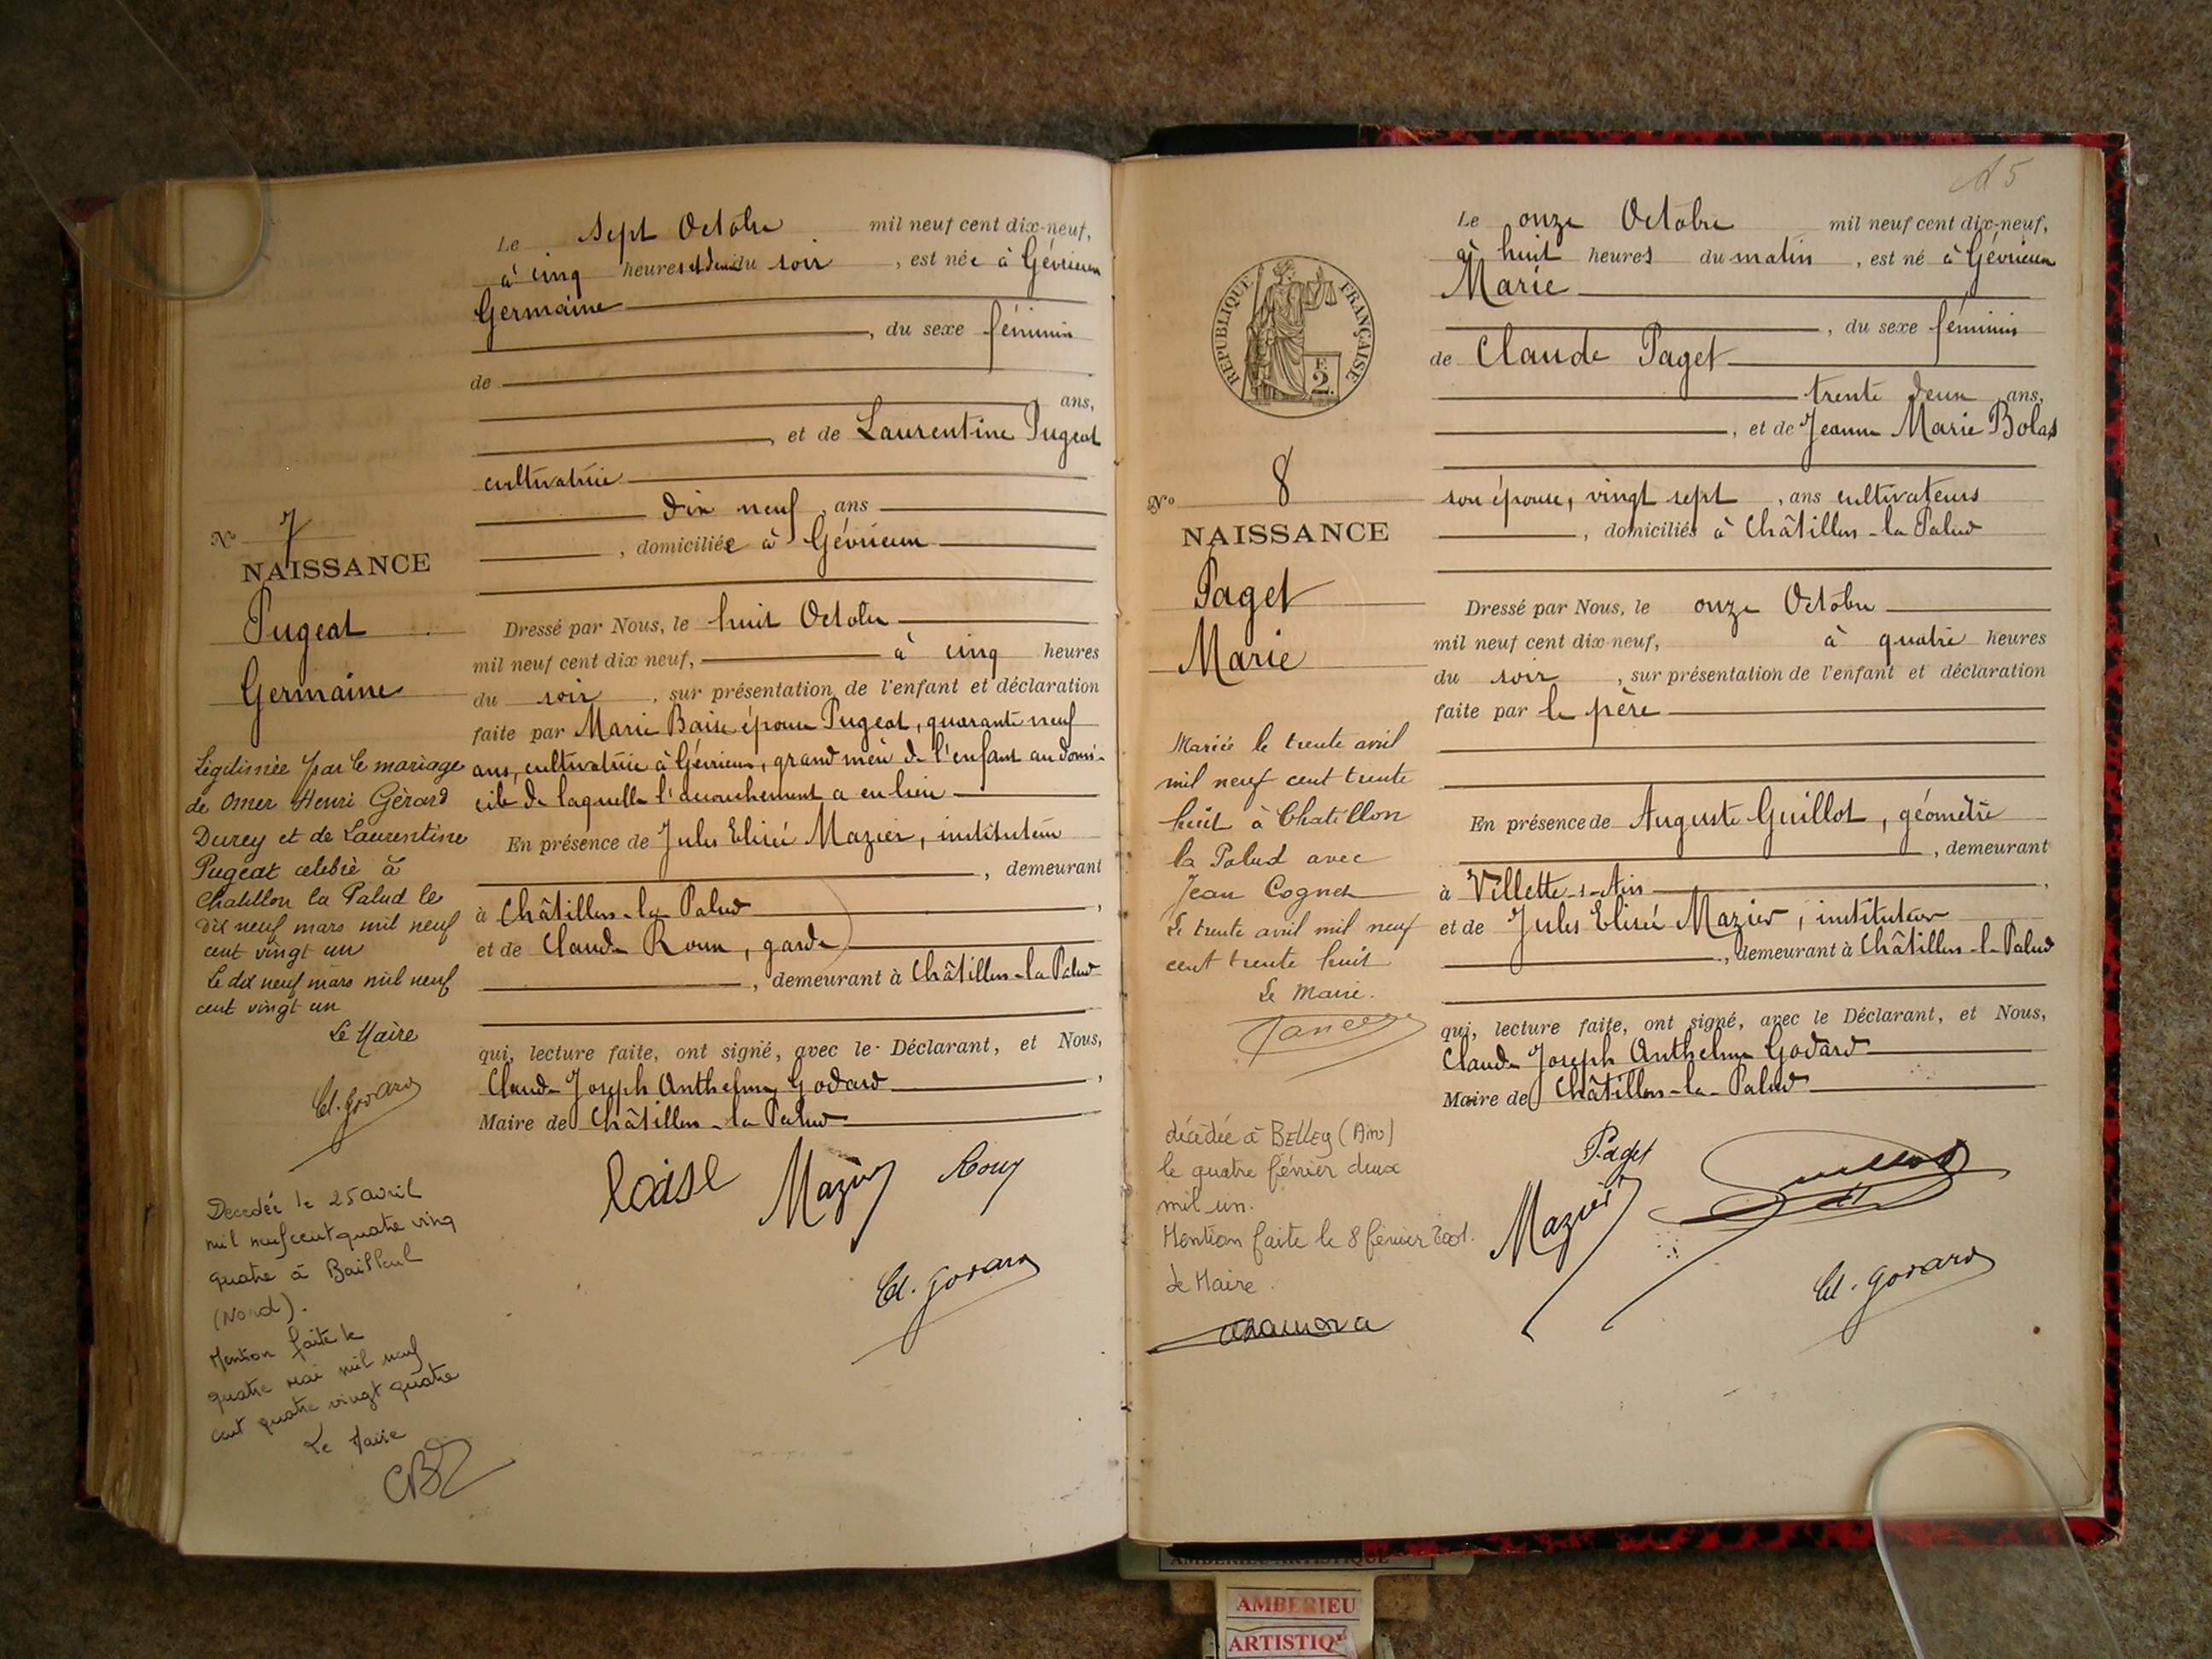 Le sept Octobre mil neuf cent dix-neuf,
à cinq heures et demi du soir, est née à Gévrieux
Germaine
, du sexe féminin
de
ans,
, et de Laurentine Pugeat
cultivatrice
dix neuf, ans
, domiciliée à Gévrieux
No 7
NAISSANCE
Pugeat
Germaine
Dressé par Nous, le huit Octobre
mil neuf cent dix neuf, à cinq heures
du soir, sur présentation de l'enfant et déclaration
faite par Marie Baise épouse Pugeat, quarante neuf
ans, cultivatrice à Gévrieux, grand mère de l'enfant au domi-
cile de laquelle l'accouchement a eu lieu
En présence de Jules Elisée Mazier, instituteur
, demeurant
à Châtillon-la-Palud,
et de Claude Roux, garde
, demeurant à Châtillon-la-Palud
qui, lecture faite, ont signé, avec le Déclarant, et Nous,
Claude Joseph Anthelme Godard,
Maire de Châtillon-la-Palud
Légitimée par le mariage
de Omer Henri Gérard
Durey et de Laurentine
Pugeat célébré à
Chatillon la Palud le
dix neuf mars mil neuf
cent vingt un
Le dix neuf mars mil neuf
cent vingt un
Le Maire
Cl. Godard
Decedée le 25 avril
mil neuf cent quatre ving
quatre à Bailleul
(Nord).
Mention faite le
quatre mai mil neuf
cent quatre vingt quatre
Le Maire
Mazier Roux
Cl. Godard
5
Le onze Octobre mil neuf cent dix-neuf,
à huit heures du matin, est né à Gévrieux
Marie
, du sexe féminin
de Claude Paget
trente deux ans,
, et de Jeanne Marie Bolas
son épouse, vingt sept, ans cultivateurs
, domiciliés à Châtillon-la-Palud
REPUBLIQUE FRANÇAISE
F.
2.
No 8
NAISSANCE
Paget
Marie
Dressé par Nous, le onze Octobre
mil neuf cent dix-neuf, à quatre heures
du soir, sur présentation de l'enfant et déclaration
faite par le père
En présence de Auguste Guillot, géomètre
, demeurant
à Villette-s-Ain,
et de Jules Elisée Mazier, instituteur
, demeurant à Châtillon-la-Palud
qui, lecture faite, ont signé, avec le Déclarant, et Nous,
Claude Joseph Anthelme Godard
Maire de Châtillon-la-Palud
Mariée le trente avril
mil neuf cent trente
huit à Chatillon
la Palud avec
Jean Cognet
Le trente avril mil neuf
cent trente huit
Le Maire.
décédée à BELLEY (Ain)
le quatre février deux
mil un.
Mention faite le 8 février 2001.
Le Maire.
Paget
Mazier
Cl. Godard
AMBERIEU ARTISTIQUE
AMBERIEU
ARTISTIQ